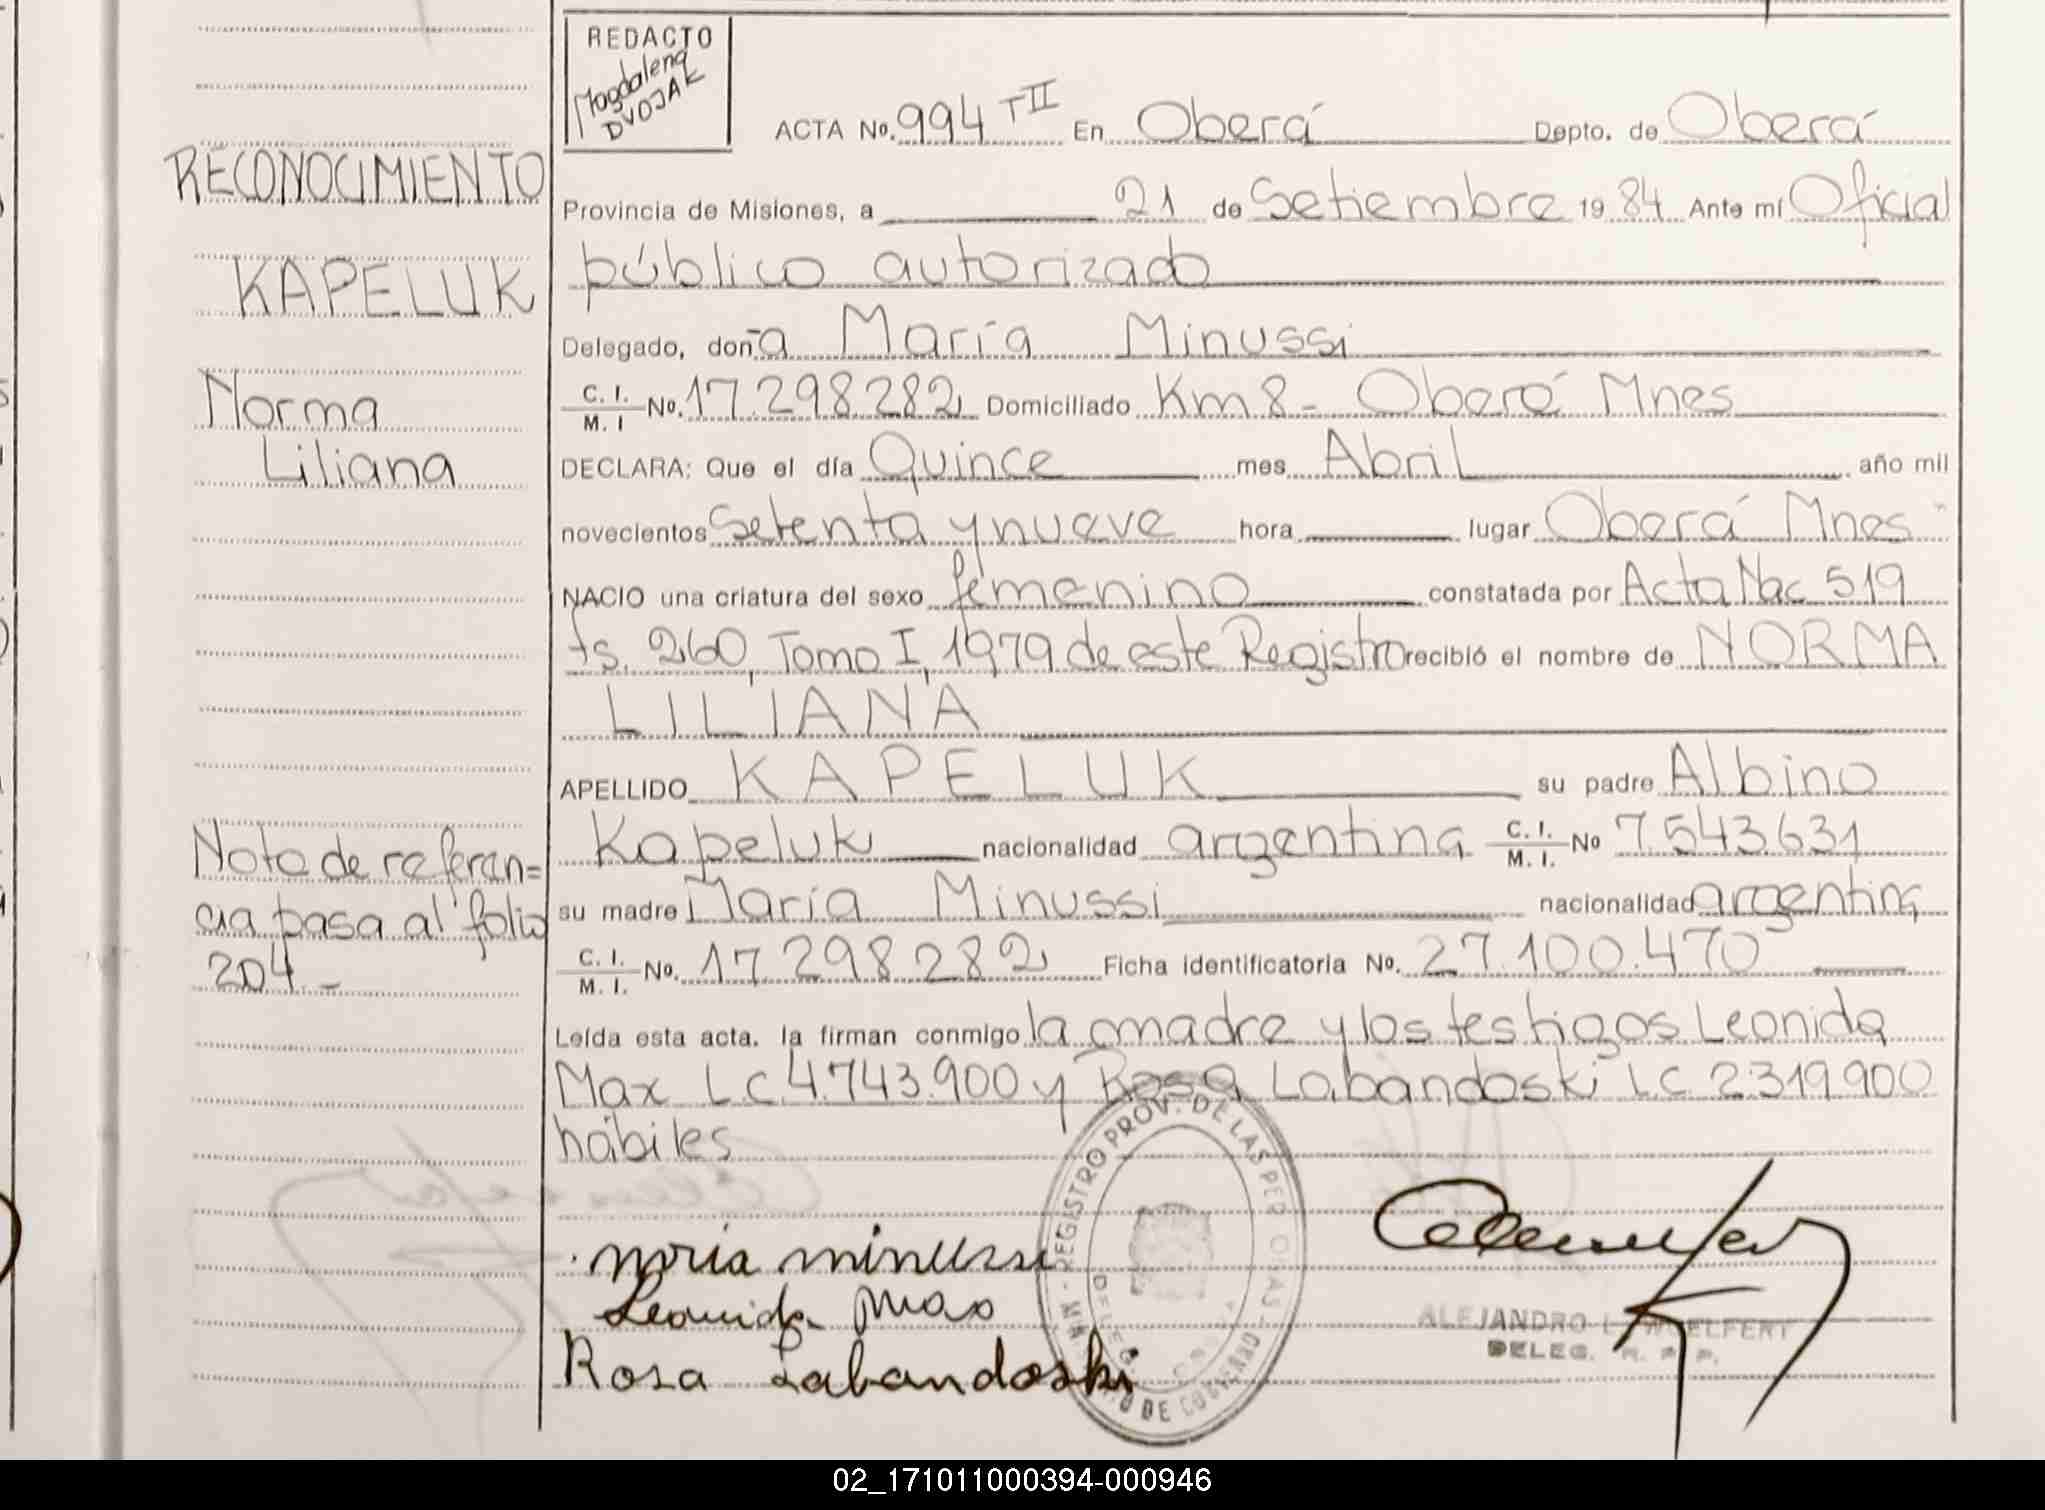 RECONOCIMIENTO
KAPELUK
Norma
Liliana
Nota de referen=
cia pasa al folio
204 -
REDACTO
Magdalena
DVOJAK
ACTA No. 994 T II En Oberá Depto. de Oberá
Provincia de Misiones, a 21 de Setiembre 19 84 Ante mí Oficial
público autorizado
Delegado, doña María Minussi
C. I. / M. I No. 17.298.282 Domiciliado Km 8 - Oberá Mnes
DECLARA: Que el día Quince mes Abril año mil
novecientos Setenta y nueve hora lugar Oberá Mnes
NACIO una criatura del sexo femenino constatada por Acta Nac 519
fs. 260, Tomo I, 1979 de este Registro recibió el nombre de NORMA
LILIANA
APELLIDO KAPELUK su padre Albino
Kapeluk nacionalidad argentina C. I. / M. I. No 7.543.631
su madre María Minussi nacionalidad argentina
C. I. / M. I. No. 17.298.282 Ficha identificatoria No. 27.100.470
Leída esta acta, la firman conmigo la madre y los testigos Leonida
Max L.C. 4.743.900 y Rosa Labandoski L.C. 2319.900
hábiles
maria minussi
Leonida Max
Rosa Labandoski
REGISTRO PROV. DE LAS PERSONAS
ALEJANDRO L. WOELFERT
DELEG. R. P. P.
02_171011000394-000946